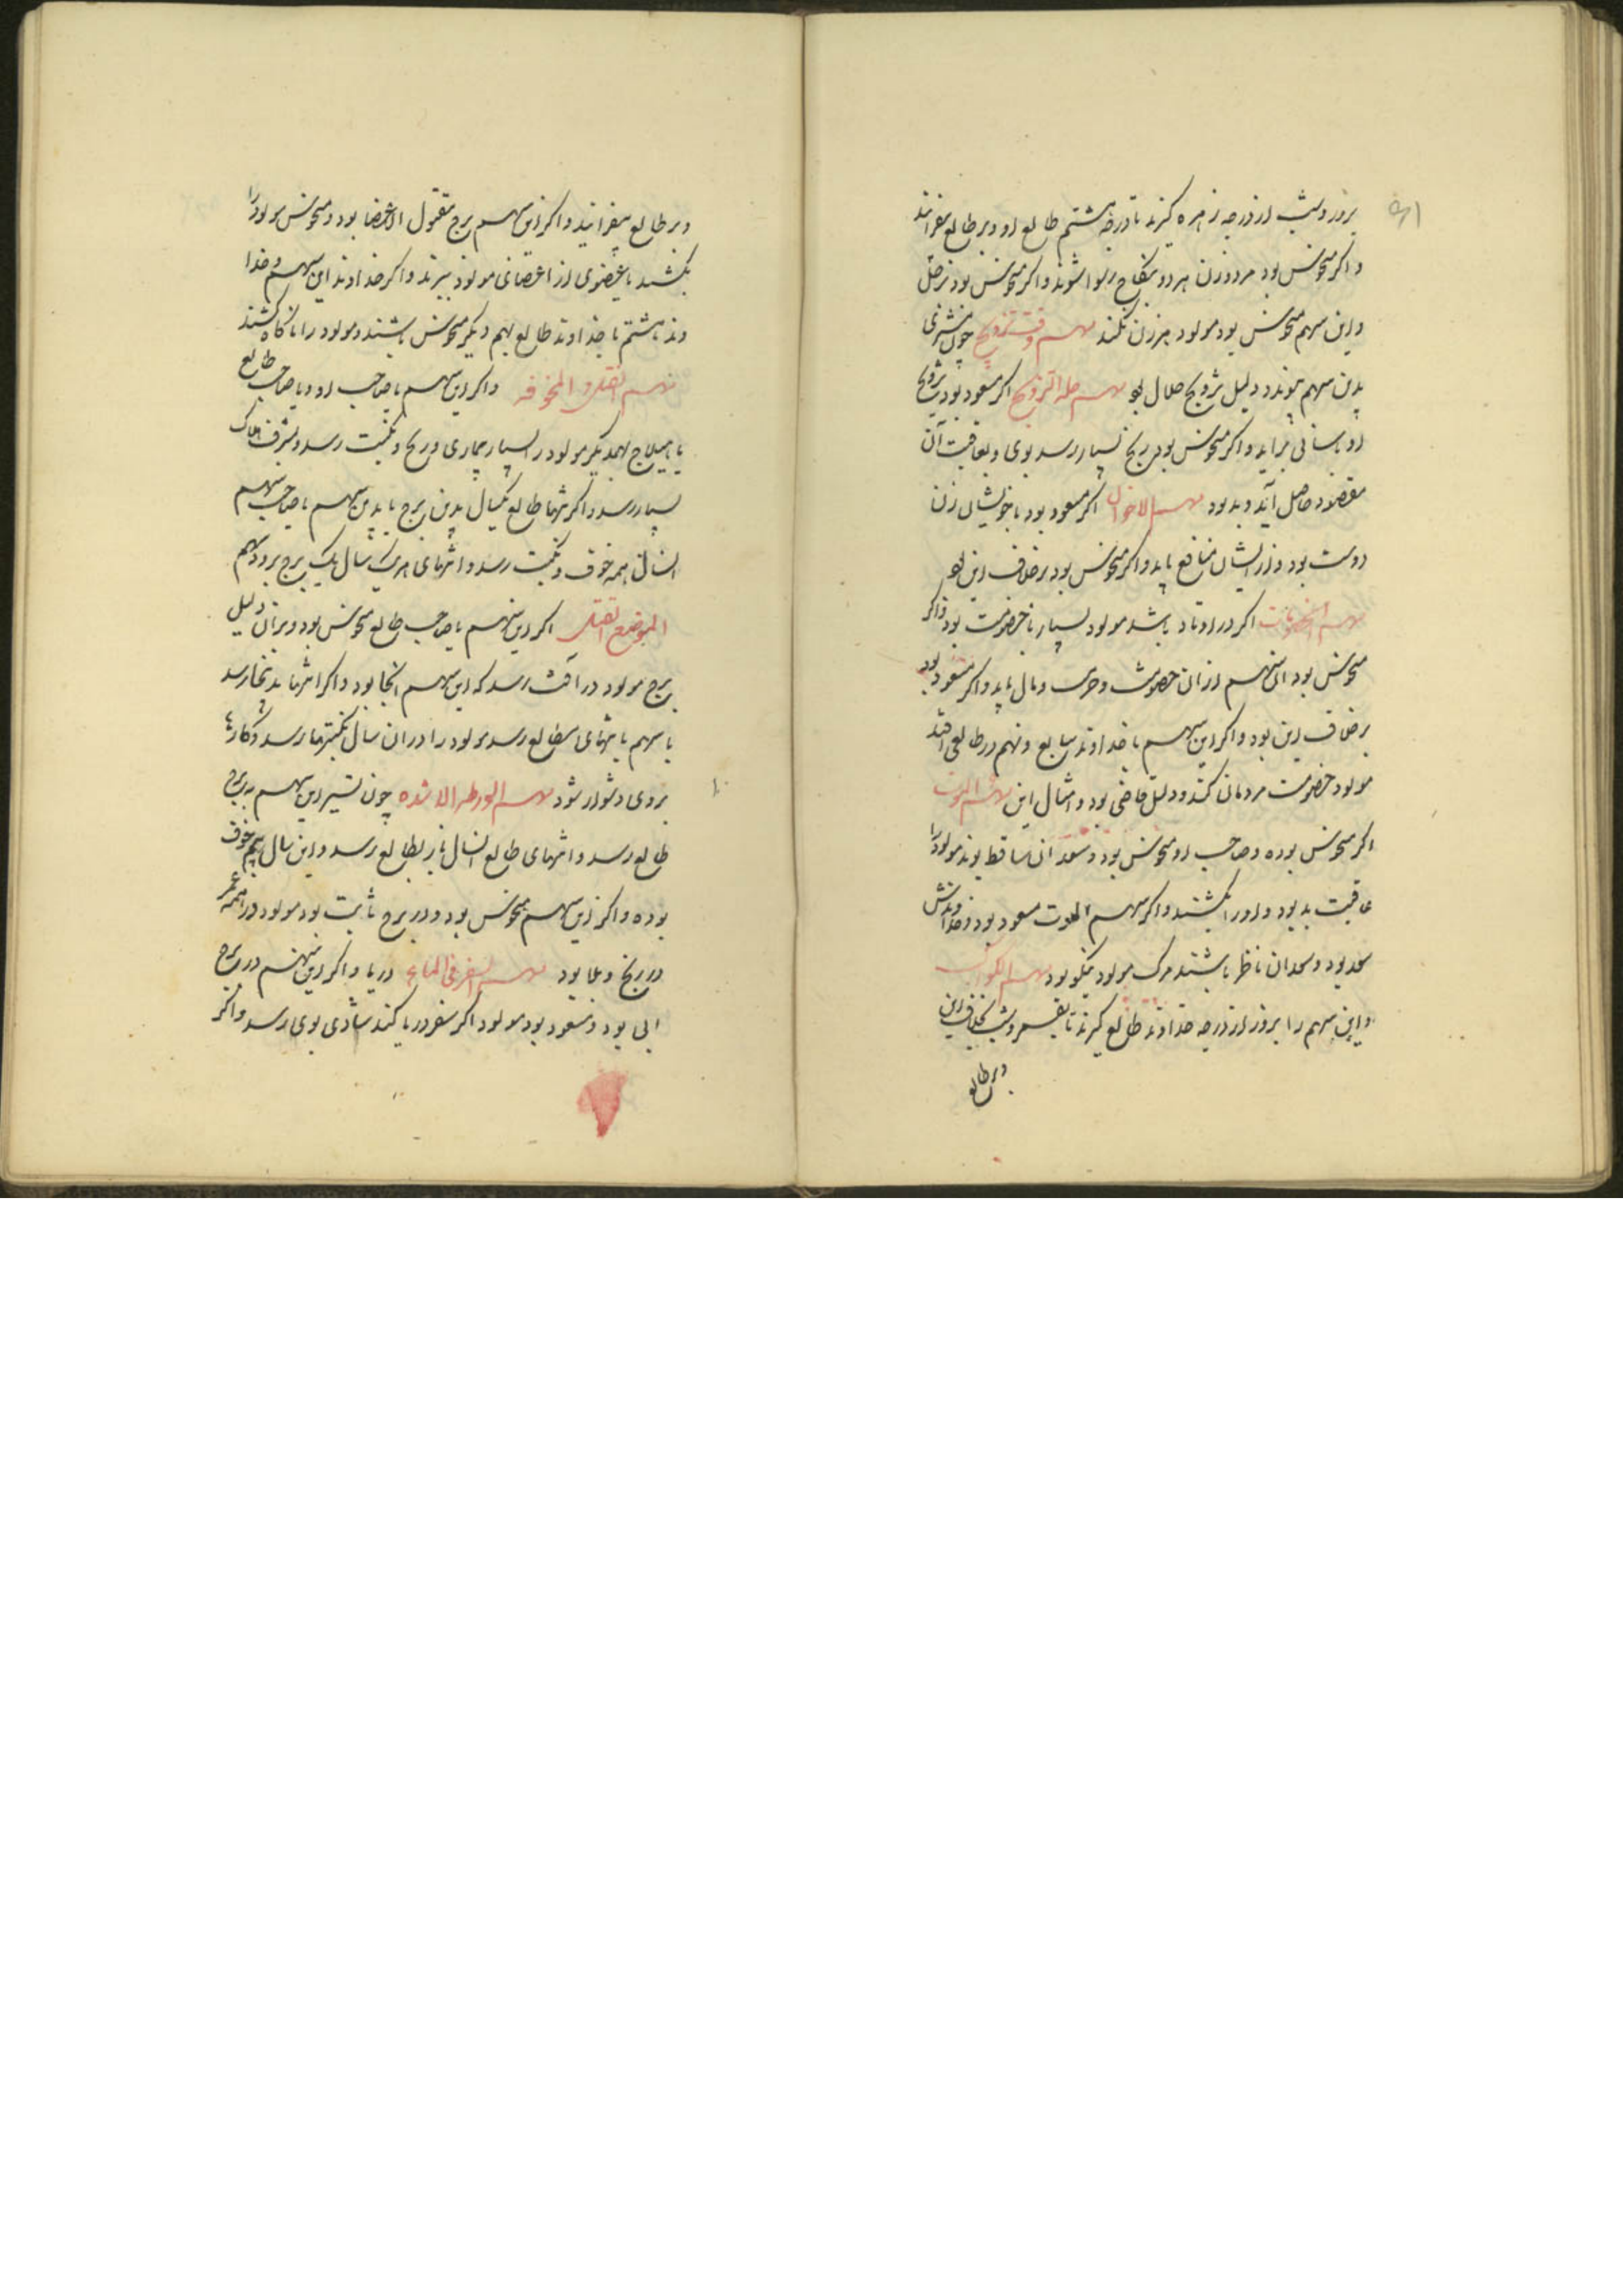 بروز و شب از درجه زهره گیرند تا درجه هشتم طالع او و بر طالع بیفزایند
و اگر منحوس بود مرد و زن هر دو بنکاح رسوا شوند و اگر منحوس بود بزحل
و این سهم منحوس بود مولود هرگز زن نکند سهم وقت تزویج چون مشتری
بدین سهم پیوندد دلیل تزویج حلال بود سهم حیله التزویج اگر مسعود بود تزویج
او بآسانی برآید و اگر منحوس بود رنج بسیار رسد بوی و بعاقبت آن
مقصود حاصل آید و بد بود سهم الاختان اگر مسعود بود با خویشان زن
دوست بود و از ایشان منافع یابد و اگر منحوس بود برخلاف این بود
سهم الخصومات اگر در اوتاد باشد مولود بسیار با خصومت بود و اگر
منحوس بود این سهم از آن خصومت و حرب وبال یابد و اگر مسعود بود
برخلاف این بود و اگر این سهم با خداوند سابع و نهم در طالع افتد
مولود خصومت مردمان کند و وکیل قاضی بود و امثال این سهم الموت
اگر منحوس بوده و صاحب او منحوس بود و سعدان ساقط بوند مولود را
عاقبت بد بود و او را بکشند و اگر سهم الموت مسعود بود و خداوندش
سعد بود و سعدان ناظر باشند مرگ مولود نیکو بود سهم
و این سهم را بروز از درجه خداوند طالع گیرند تا بقمر و بشب بخلاف این
و بر طالع
و بر طالع بیفزایند و اگر این سهم برج مقطوع الاعضا بود و منحوس مولود را
بکشند یا عضوی از اعضائی مولود ببرند و اگر خداوند این سهم و خدا
وند هشتم با خداوند طالع بهم دیگر منحوس باشند مولود را ناگاه کشند
سهم السنة المخوفه و اگر این سهم با صاحب او و با صاحب طالع
یا هیلاج بهمدیگر مولود را بسیار بیماری و رنج و نکبت رسد و بشرف هلاک
بسیار رسد و اگر انتها طالع بکسال بدین برج یا بدین سهم یا صاحب سهم
آنسال همه خوف و نکبت رسد و انتهای هر یک سال یک برج برود سهم
الموضع الثقیل اگر این سهم با صاحب طالع منحوس بود و بر آن دلیل
برج مولود در آفت رسد که این سهم آنجا بود و اگر انتها بدینجا رسد
یا سهم یا انتهای بطالع رسد مولود را در آن سال نکبتها رسد و کارها
بروی دشوار شود سهم الورطه الاشده چون تسییر این سهم به برج
طالع رسد و انتهای طالع آنسال باز بطالع رسد و این سال بیم خوف
بوده و اگر این سهم منحوس بود و در برج ثابت بود مولود در همه عمر
در رنج و بلا بود سهم السفر فی الماء دریا و اگر این سهم در برج
آبی بود و مسعود بود مولود اگر سفر دریا کند شادی بوی رسد و اگر